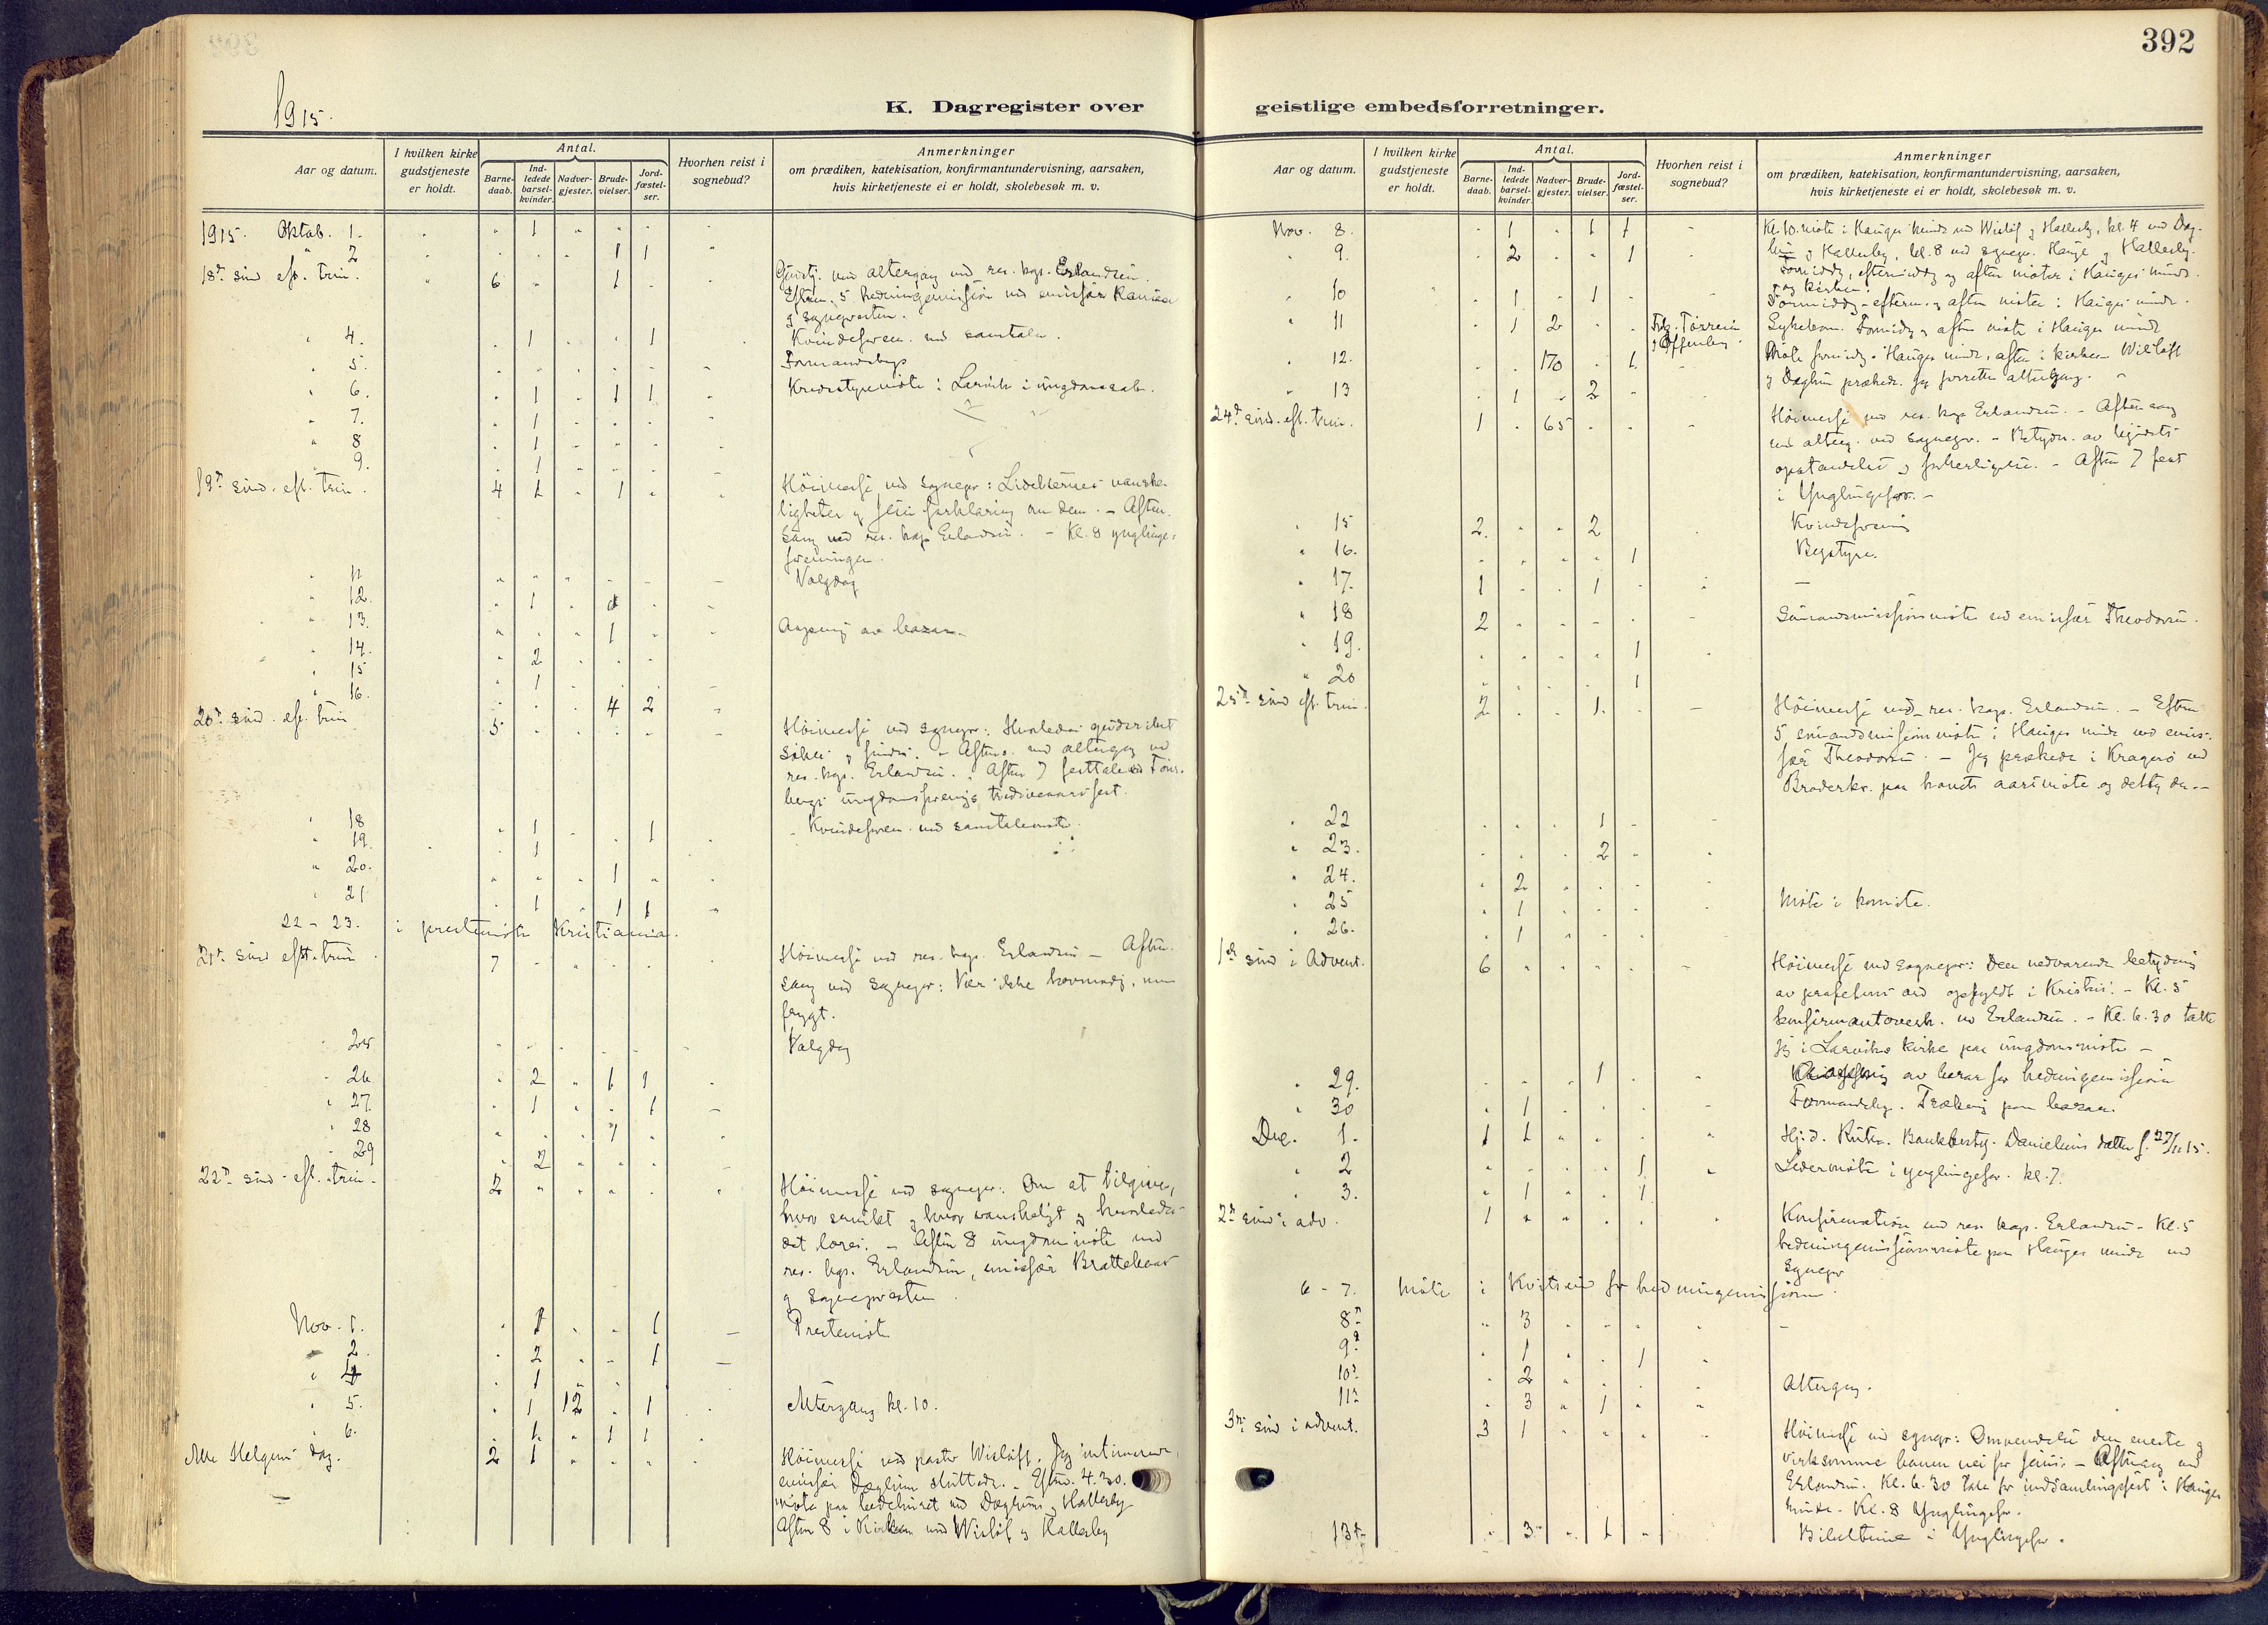 392
1915.
K. Dagregister over geistlige embedsforretninger.
Aar og datum.
I hvilken kirke gudstjeneste er holdt.
Antal.
Barne-daab.
Ind-ledede barsel-kvinder.
Nadver-gjester.
Brude-vielser.
Jord-fæstel-ser.
Hvorhen reist i sognebud?
Anmerkninger
om prædiken, katekisation, konfirmantundervisning, aarsaken,
hvis kirketjeneste ei er holdt, skolebesøk m. v.
1915. Oktob. 1. 1
" 2 1 1
18d sønd. eft. trin. 6 1 Gudstj. med altergang ved res. kap. Erlandsen.
Efterm. 5 hedningemission ved emissær
g sognepresten.
" 4. 1 1 Kvindeforen. med samtale.
" 5. Formandskap
" 6. 1 1 1 Kredsstyremøte i Larvik i ungdomssak.
" 7. 1
" 8 1
" 9. 1
19d sønd. eft. trin. 4 1 1 Høimesse ved sognepr: Lidelsernes vanske-
ligheter og forklaring om dem. - Aften-
sang ved res. kap. Erlandsen. - Kl. 8 ynglinge-
foreningen.
" 11 Valgdag
" 12. 1
" 13. 1 Aapning av bazar.
" 14. 2
" 15 1
" 16. 4 2
20d sønd. eft. trin 5 Høimesse ved sognepr: Hvorledes
søkes og findes. - Aftens. med altergang ved
res. kap. Erlandsen. Aften 7 festtale ved Tøns-
bergs ungdomsforenings fest.
" 18 1 1 Kvindeforen. med samtalemøte.
" 19. 1
" 20. 1
" 21 1 1 1
22 - 23. i prestemøte Kristiania.
21d sønd eft. trin 7 Høimesse ved res. kap. Erlandsen - Aften-
sang ved sognepr: Vær ikke hovmodig, men
frygt.
" 25 Valgdag
" 26 2 1 1
" 27. 1 1
" 28 1
" 29 2
22d sønd. eft. trin. 2 Høimesse ved sognepr: Om at tilgive,
hvor og hvor vanskeligt og hvorledes
det læres. - Aften 8 ungdomsmøte ved
res. kap. Erlandsen, emissær Brattebø
g sognepresten.
Nov. 1. 1 1 Prestemøte
" 2. 2 1
" 4 1
" 5. 1 12 1 Altergang kl. 10.
" 6. 1 1 1
Alle Helgens dag. 2 1 Høimesse ved pastor Wisløff. Jeg intimerede,
emissær Daglum sluttede. - Efterm. 4.30.
møte paa bedehuset ved Daglum og Hallerby
Aften 8 i Kirken ved Wisløf og Hallerby
Aar og datum.
I hvilken kirke gudstjeneste er holdt.
Antal.
Barne-daab.
Ind-ledede barsel-kvinder.
Nadver-gjester.
Brude-vielser.
Jord-fæstel-ser.
Hvorhen reist i sognebud?
Anmerkninger
om prædiken, katekisation, konfirmantundervisning, aarsaken,
hvis kirketjeneste ei er holdt, skolebesøk m. v.
Nov. 8. 1 1 1 Kl. 10. møte i Hauges minde ved Wisløf og Hallerby, kl. 4 ved Dag-
lum og Hallerby, kl. 8 ved sognepr. Hauge og Hallerby.
" 9. 2 1 Formiddg, eftermiddg og aften møter i Hauges minde
og kirken.
" 10 1 1 Formiddg - efterm. og aften møter i Hauges minde.
" 11 1 2 Sykekom. Formidg og aften møte i Hauges minde
" 12. 170 1 Møte formidg. Hauges minde, aften i kirken Wisløff
g Daglum prækedr. Jeg forrettet altergang.
" 13 1 2
24d sønd. eft. trin. 1 65 Høimesse ved res. kap Erlandsen. - Aftensang
med alterg. ved sognepr. - Betydn. av legemets
opstandelse og forherligelse. - Aften 7 fest
i Ynglingefor. -
" 15 2. 2 Kvindeforening
" 16. 1 Bystyre.
" 17. 1 1
" 18 2 Sømandsmissionsmøte ved emissær Theodorsen.
" 19. 1
" 20 1
25d sønd eft. trin. 2 1 Høimesse ved res. kap. Erlandsen. - Efterm
5 sømandsmissionmøte i Hauges minde ved emis-
sær Theodorsen. - Jeg prækede i Kragerø ved
Broderkr. paa Krets aarsmøte og deltog der. -
" 22 1
" 23. 2
" 24. 2
" 25 1 Møte i komite.
" 26. 1
1ste sønd i Advent. 6 Høimesse ved sognepr: Den nuværende betydning
av profetens ord opfyldt i Kristus. - Kl. 5
konfirmantoverh. ved Erlandsen. - Kl. 6.30 talte
jeg i Larviks kirke paa ungdomsmøte -
" 29. 1 av bazar for hedningemissionen
" 30 1 Formandskp. Trækning paa bazar.
Dec. 1. 1 1 Hj.d. Ruth. Bankbesty. Danielsens datter f. 27/11 15.
" 2 1 Ledermøte i ynglingefor. kl. 7.
" 3. 1 1
2n sønd i adv. 1 Konfirmation ved res. kap. Erlandsen - Kl. 5
hedningemissionsmøte paa Hauges minde ved
sognepr
6 - 7. Møte i Kviteseid for hedningemissionen.
8d 3
9d 1 1
10d 2
11d 3 1 Altergang.
3n sønd i advent. 3 1 Høimesse ved sognepr: Omvendelse den eneste og
virksomme banen vei for Jesus. - Aftensang ved
Erlandsen. Kl. 6.30 tale for indsamlingsfest i Hauges
minde - Kl. 8 Ynglingefor.
13d 3 1 Bibeltime i Ynglingefor.